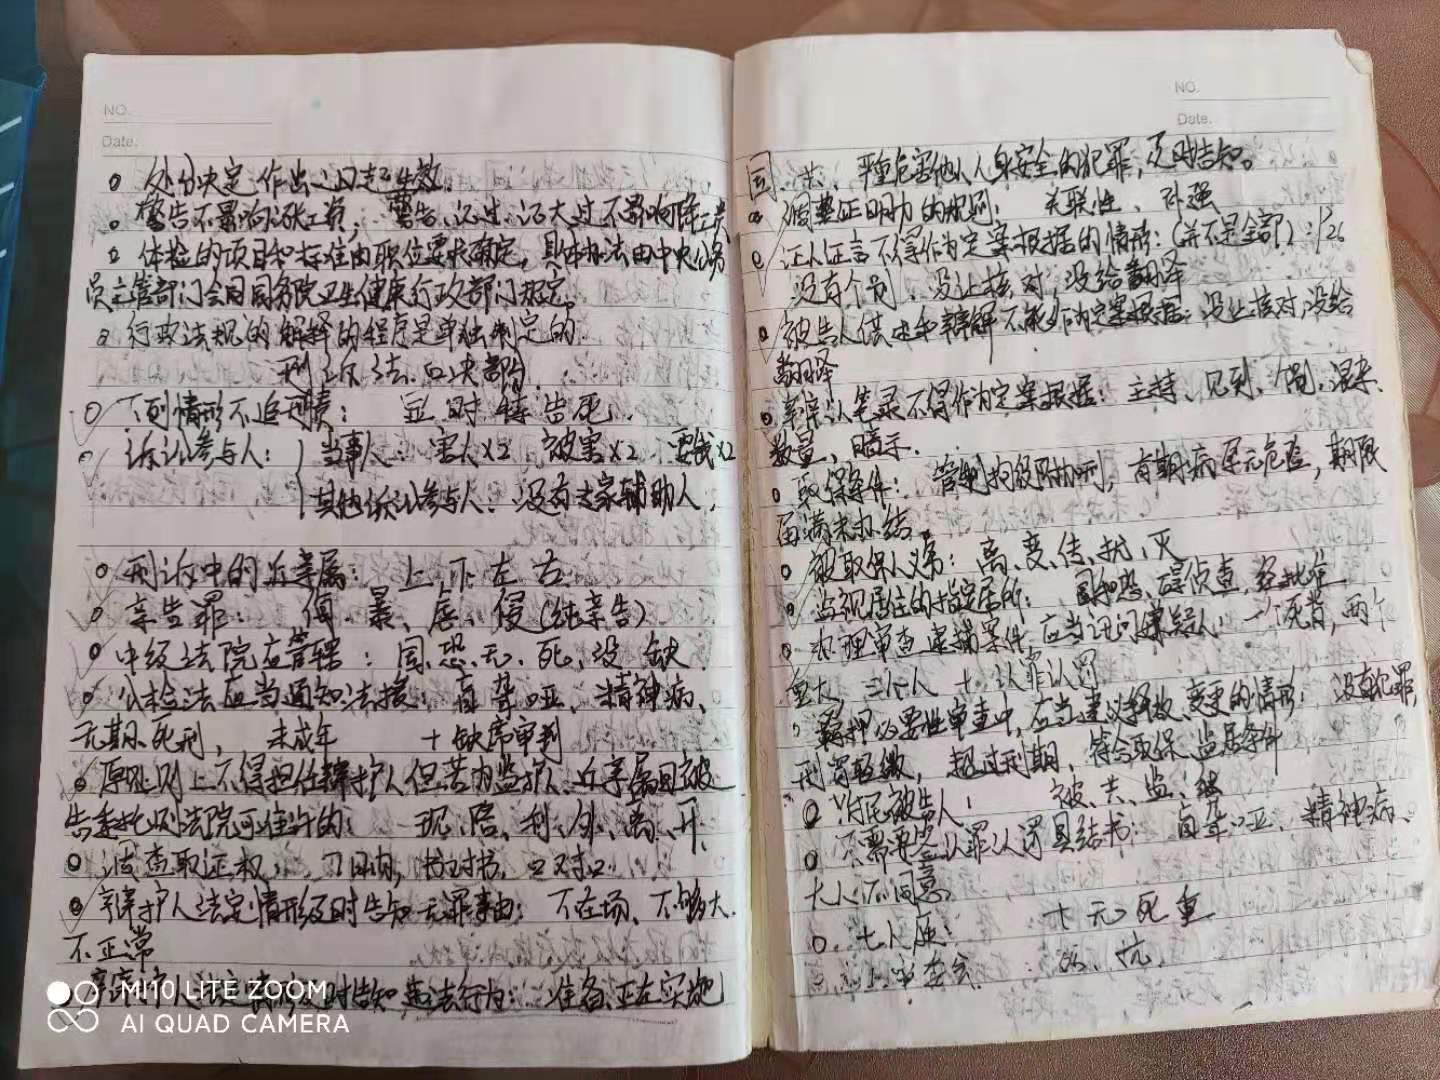 NO.
Date.
处分决定作出之日起生效.
警告不影响涨工资; 警告、记过、记大过不影响降工资
体检的项目和标准由职位要求确定, 具体办法由中央公务
员主管部门会同国务院卫生健康行政部门规定。
行政法规的解释的程序是单独制定的.
刑诉法口诀部分.
下列情形不追刑责: 显时特告死.
诉讼参与人: 当事人: 害人×2 被害×2 ×2
其他诉讼参与人: 没有专家辅助人.
刑诉中的近亲属: 上、下、左、右
亲告罪: 侮、暴、虐、侵(纯亲告)
中级法院应管辖: 国、恐、无、死、没、缺.
公检法应当通知法援: 盲、聋、哑、精神病、
无期、死刑, 未成年 + 缺席审判
原则上不得担任辩护人但若为监护人、近亲属且被
告委托则法院可准许的: 现、陪、利、外、离、开.
调查取证权: 书对书, 口对口
辩护人法定情形及时告知无罪事由: 不在场、不够大.
不正常
辩护人法定情形及时告知违法行为: 准备、正在实施
MI 10 LITE ZOOM
AI QUAD CAMERA
NO.
Date.
国、公共、严重危害他人人身安全的犯罪, 及时告知。
调整证明力的规则: 关联性、补强
证人证言不得作为定案根据的情形: (并不是全部)
没有个别、没让核对、没给翻译
被告人供述和辩解不能作为定案根据: 没让核对、没给
翻译
辨认笔录不得作为定案根据: 主持、见到、个别、混杂.
数量、暗示.
取保条件: 管制拘役附加刑, 有期 病孕无危险, 期限
届满未办结.
被取保人义务: 离、变、传、扰、灭
监视居住的指定居所: 国和恐、碍侦查, 经批准
办理审查逮捕案件应当讯问嫌疑人: 两个
重大, + 认罪认罚
羁押必要性审查中, 应当建议释放、变更的情形: 没有犯罪,
刑罚轻微, 超过刑期, 符合取保、监居条件
附民被告人: 被、共、监、继
不需要签认罪认罚具结书: 盲、聋、哑、精神病、
大人不同意
七人庭: + 无、死、重